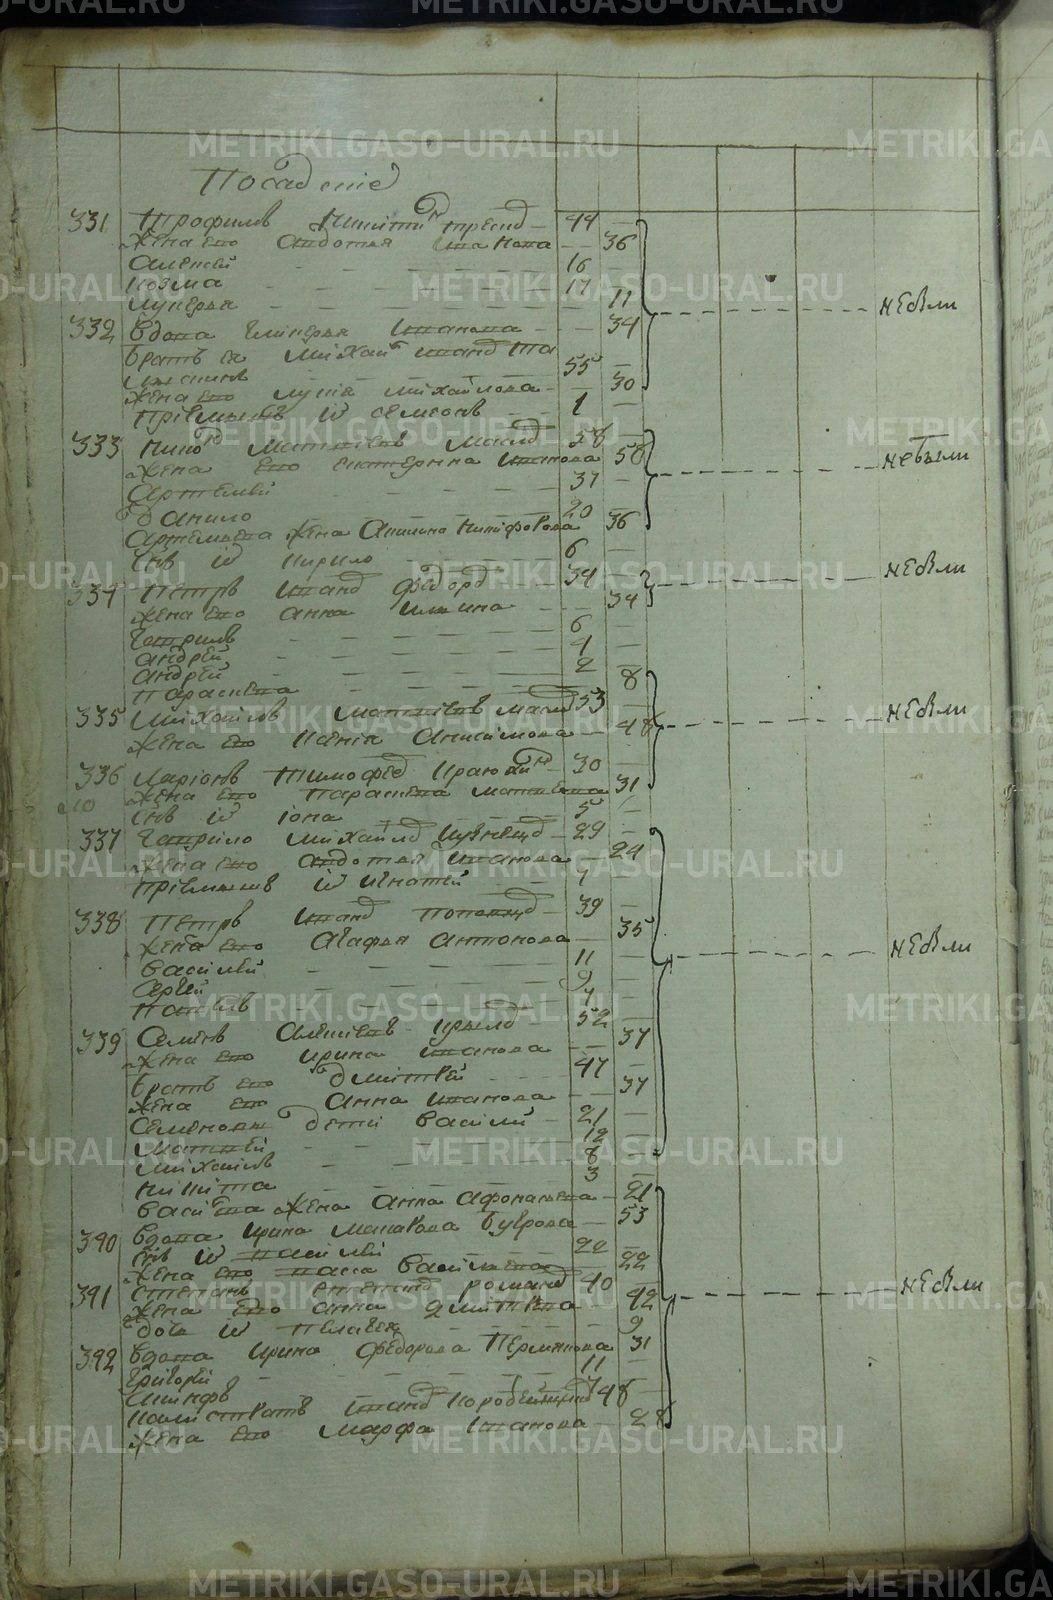 METRIKI.GASO-URAL.RU
Посацкие
331 Трофимъ Никитин 44
Жена ево Авдотья Иванова 36
Алексей 16
Козма 14
Лукерья 11
332 Вдова Гликерья Иванова 34
братъ ея Михаил Иванов
55
Жена ево Лукия Михайлова 30
Приемышъ их Семионъ 1
333 Матвеевъ 58
Жена ево Екатерина Иванова 58
Артемей 37
Данило 20
Артемьева жена Акилина Никифорова 36
Снъ их Кирило 6
334 Петръ Иванов Федоров 34
Жена ево Анна Ильина 34
Гаврилъ 6
Андрей 4
Андрей 2
Парасковья 8
335 Михайлъ Матвеевъ 53
Жена ево Ксения Анисимова 48
336 Ларионъ Тимофеев 30
Жена ево Парасковья Матвеева 31
Снъ их Иона 5
337 Гаврило Михайлов Кузнецов 29
Жена ево Авдотья Иванова 24
Приемышъ их Игнатей 4
338 Петръ Иванов Попов 39
Жена ево Агафья Антонова 35
Василей 11
Сергей 9
Павелъ 4
339 Семенъ Алексеевъ 52
Жена ево Ирина Иванова 37
братъ ево Дмитрей 47
Жена ево Анна Иванова 37
Семеновы дети Василий 21
Матвей 12
Михайло 8
Никита 3
Василья жена Анна Афонасьева 21
340 Вдова Ирина Макарова 53
Снъ их Василей 22
Жена ево Васса Васильева 22
341 Степанъ Степанов Романов 40
Жена ево Анна Дмитриева 42
дочь их Пелагея 9
342 Вдова Ирина Федорова Пермякова 31
Григорей 11
Иванов Коробейников 48
Жена ево Марфа Иванова 28
небыли
небыли
небыли
небыли
небыли
небыли